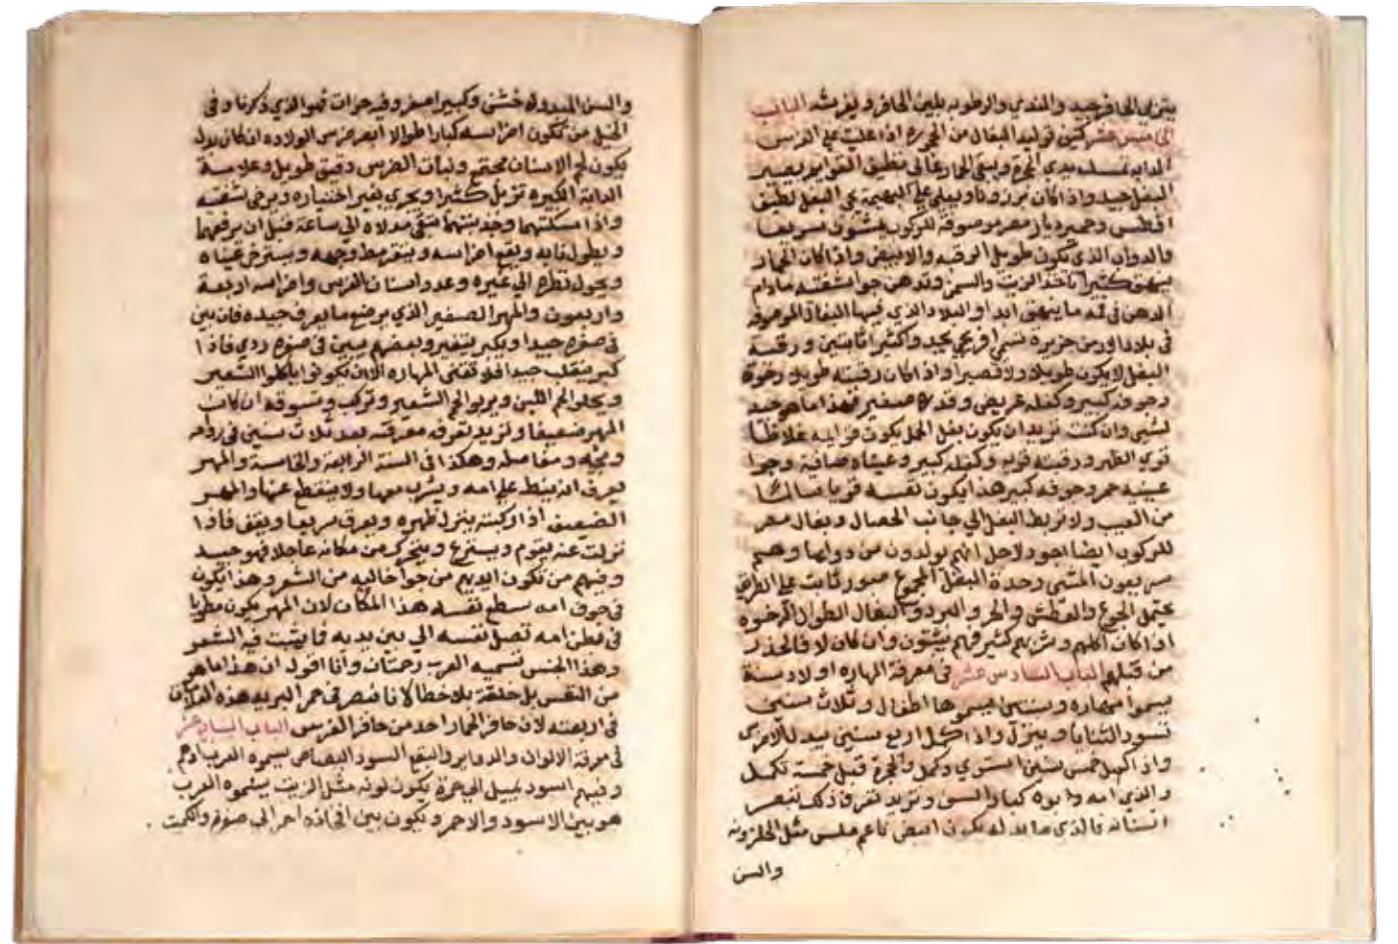 يتربى الحافر جيد والندي والرطوبه يلين الحافر ويفرشه الباب
الخامس عشر توليد البغال من الحجره اذا علت على الفرس
الدابه بيدي الحجرة ويبقى الحمار عالى نطيق القوايم يصير
البغل جيد واذا كان برزونا ويعلى على البهيمة يجي البغل لطيف
افطس وحمير ديار مصر موصوفة للركوب يمشون سريعا
والدواب الذي يكون طويل الرقبه والابيض واذا كان الحمار
ينهق كثيرا تاخذ الزيت والسمن وتدهن جوا شفته مادام
الدهن في فمه ما ينهق ابدا والبلاد الذي فيها البغال الموصوفه
في بلاد من جزيره تسمى جيد وكثير ورقبة
البغل لا يكون طويلا ولا قصيرا واذا كان رقبته طويله رخوة
وجوفه كبير وكفله عريض وقدع صغير فهذا ما هو جيد
لشي وان كنت تريد ان يكون بغل الحمل يكون قوايمه غلاظا
قوي الظهر ورقبته قويه وكفله كبير وعيناه صافية وجوا
عينيه حمر وجوفه كبير هذا يكون نفسه قويا سالما
من العيب ولا تربط البغل الي جانب الحصان وبغال مصر
للركوب ايضا اجود لاجل انهم يولدون من دوابها وهم
سريعون المشي وحدة البغل المجموع صبور ثابت على الطريق
يحتمل الجوع والعطش والحر والبرد والبغال الطوال الرخوه
اذا كان اكلهم وشربهم كثير فهم يشتون وان كان لا فالحذر
من قتلهم الباب السادس عشر في معرفة المهاره اولاد سنة
يسموا مهاره وسنتين يسموها اطفال وثلاث سنين
تسود الثنايا وينزل واذا كمل اربع سنين يبدل الاخرى
واذا كمل خمس سنين استوي وكمل والحجرة قبل خمسة تكمل
والذي امه وابوه كبار السن وتريد تعرف ذلك تبصر
اسنانه فالذي يكون ابيض ناعم ملس مثل الحلزونه
والسن
والسن المبدوله خشن وكبير اصفر وفيه حزات فهو الذي ذكرناه في
الخيل من تكون اضراسه كبارا طوالا ابصر فرس الولاده ان كان
يكون لحم الاسنان مجتمع ونبات الفرس دقيق طويل وعلامة
الدابة الكبيره تزبل كثيرا وتجري بغير اختياره ويرخي شفته
واذا مسكتهما وجذبتهما تبقى مدلاه الي ساعة قبل ان يرفعهما
ويطول نابه ويقع اضراسه وينقرمط وجهه ويسترخي عيناه
ويحول نظره الي غيره وعدد اسنان الفرس واضراسه اربعة
واربعون والمهر الصغير الذي يرضع ما يعرف جيده فان بين
في صغره جيدا ويكبر يتغير وبعضهم يبين في صغره ردي فاذا
كبر ينقلب جيدا فلا تقتني المهاره الا ان يكونوا ياكلوا الشعير
ويخلو الحم اللبن ويربو الحم الشعير وتركب وتسوقه ان كانت
المهر ضعيفا وتريد تعرف معرفته بعد ثلاث سنين في
ومخه ومفاصله وهكذا في السنة الرابعة والخامسة والمهر
يعرف انه ينط على امه ويشرب معها ولا ينقطع عنها والمهر
الضعيف اذا ركبته ينزل ظهره ويعرق سريعا ويقف فاذا
نزلت عنه يقوم ويسرع ويتحرك من مكانه عاجلا فهو جيد
وفيهم من تكون ايديهم من جوا خاليه من الشعر وهذا يكون
في جوف امه سطع نفسه هذا المكان لان المهر يكون مطويا
في بطن امه تصل نفسه الي بين يديه فما ينبت فيه الشعر
وهذا الجنس تسميه العرب رحمتان وانا اقول ان هذا ما هو
من النفس بل خلقة بلا خطا لانا نبصر في حمر البريه هذه العلامات
في اربعته لان حافر الحمار احد من حافر الفرس الباب السابع عشر
في معرفة الالوان والدواير والبقع السود البصاص يسموه العرب ادهم
وفيهم اسود يميل الي حمرة يكون لونه مثل الزيت يسموه العرب
هو بين الاسود والاحمر ويكون بين افخاذه احمر الى صفرة والكميت